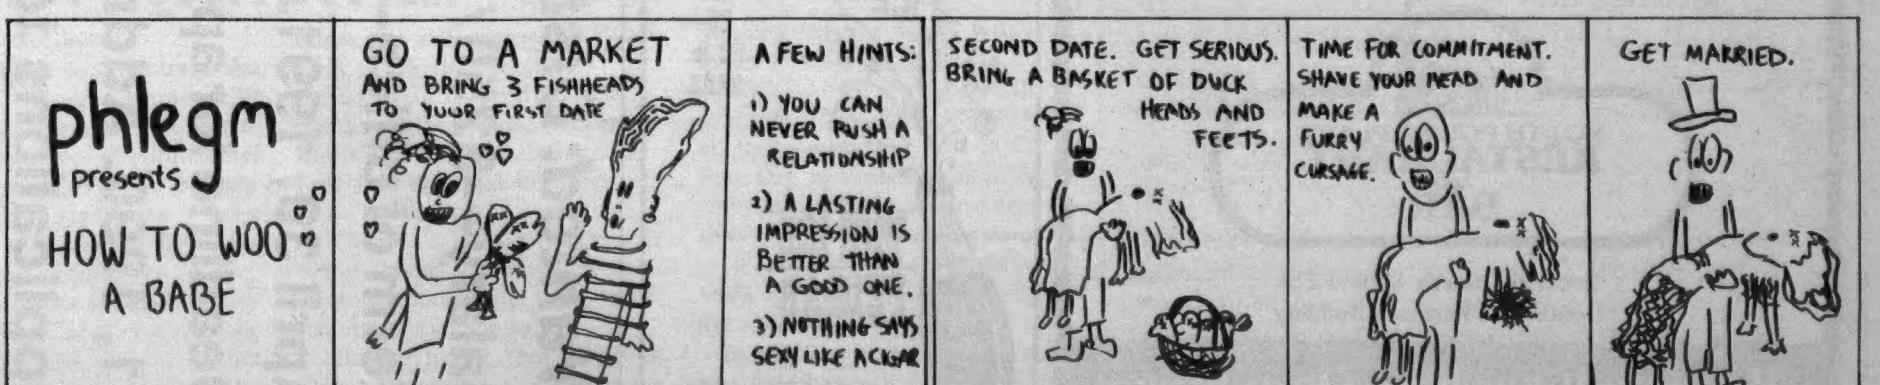 phlegm
presents
HOW TO WOO
A BABE
GO TO A MARKET
AND BRING 3 FISHHEADS
TO YUUR FIRST DATE
A FEW HINTS:
1) YOU CAN
NEVER RUSH A
RELATIONSHIP
2) A LASTING
IMPRESSION IS
BETTER THAN
A GOOD ONE.
3) NOTHING SAYS
SEXY LIKE A
SECOND DATE. GET SERIOUS.
BRING A BASKET OF DUCK
HEADS AND
FEETS.
TIME FOR COMMITMENT.
SHAVE YOUR HEAD AND
MAKE A
FURRY
CURSAGE.
GET MARRIED.